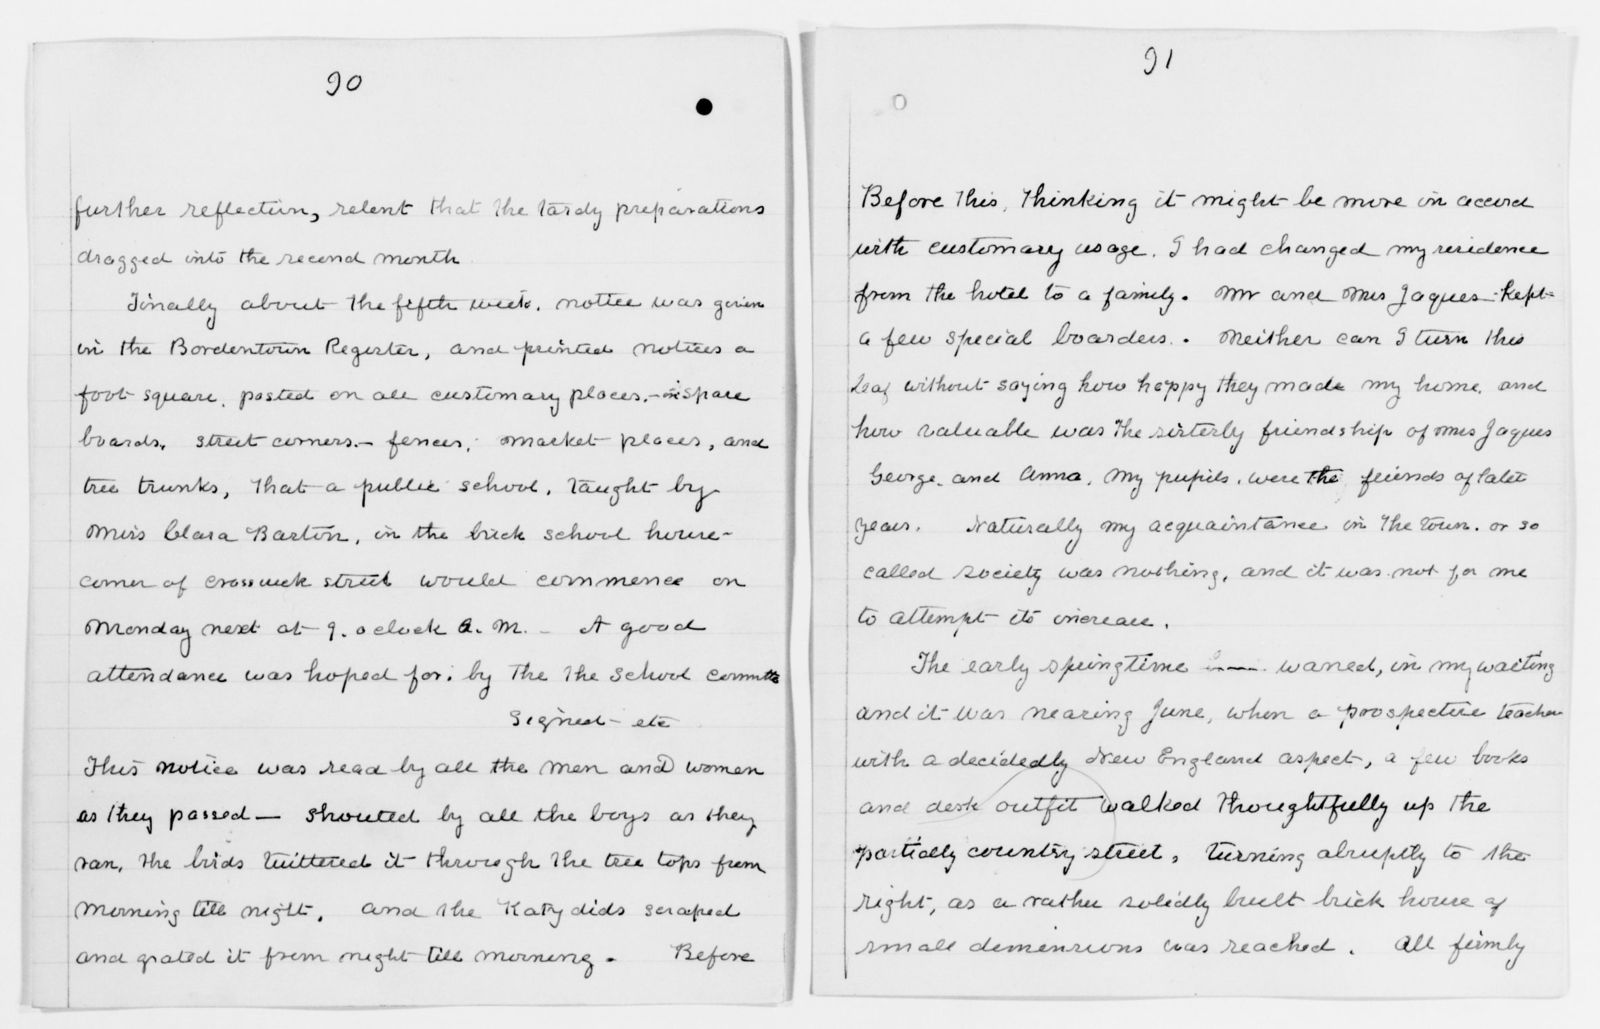 90
further reflection, relent that the tardy preparations
dragged into the second month
Finally about the fifth week. notice was given
in the Bordentown Register, and printed notices a
foot square. posted on all customary places, - in spare
boards, street corners - fences, market places, and
tree trunks, that a public school, taught by
Miss Clara Barton, in the brick school house -
corner of crosswick street would commence on
Monday next at 9. oclock A. M. - A good
attendance was hoped for. by the the School committe
Signed - etc
This notice was read by all the men and women
as they passed — shouted by all the boys as they
ran, the birds twittered it through the tree tops from
morning till night, and the Katy dids scraped
and grated it from night till morning. Before
91
Before this, thinking it might be more in accord
with customary usage. I had changed my residence
from the hotel to a family. Mr and Mrs Jaques - Kept -
a few special boarders. Neither can I turn this
leaf without saying how happy they made my home, and
how valuable was the sisterly friendship of Mrs Jaques
George, and Anna, my pupils, were the friends of later
years. Naturally my acquaintance in the town. or so
called society was nothing, and it was not for me
to attempt its increase.
The early springtime waned, in my waiting
and it was nearing June, when a prospective teacher
with a decidedly New England aspect, a few books
and desk outfit walked thoughtfully up the
partially country street, turning abruptly to the
right, as a rather solidly built brick house of
small demensions was reached. All firmly